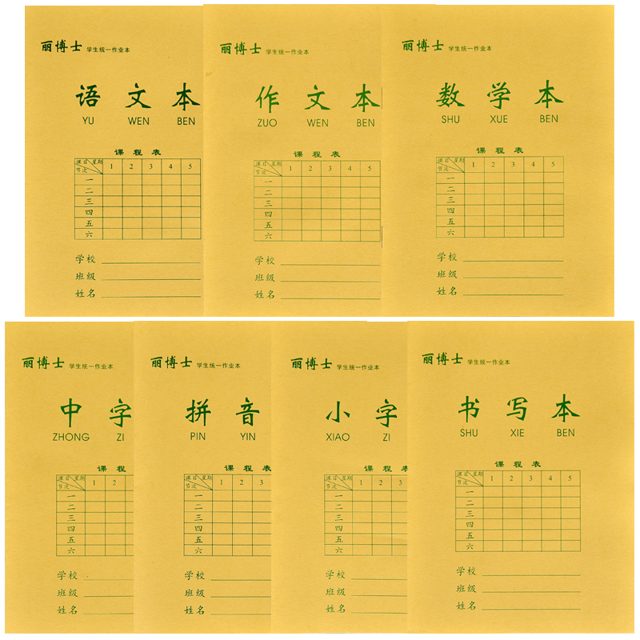 丽博士 学生统一作业本
语文本
YU WEN BEN
课程表
课目 星期 1 2 3 4 5
节次
一
二
三
四
五
六
学校
班级
姓名
丽博士 学生统一作业本
作文本
ZUO WEN BEN
课程表
课目 星期 1 2 3 4 5
节次
一
二
三
四
五
六
丽博士 学生统一作业本
数学本
SHU XUE BEN
课程表
课目 星期 1 2 3 4 5
节次
一
二
三
四
五
六
学校
班级
姓名
学校
班级
姓名
丽博士 学生统一作业本
中字
ZHONG ZI
课程表
课目 星期 1 2 3
节次
一
二
三
四
五
六
学校
班级
姓名
丽博士 学生统一作业本
拼音
PIN YIN
课程表
课目 星期 1 2 3 4
节次
一
二
三
四
五
六
学校
班级
姓名
丽博士 学生统一作业本
小字
XIAO ZI
课程表
课目 星期 1 2 3
节次
一
二
三
四
五
六
学校
班级
姓名
丽博士 学生统一作业本
书写本
SHU XIE BEN
课程表
课目 星期 1 2 3 4 5
节次
一
二
三
四
五
六
学校
班级
姓名